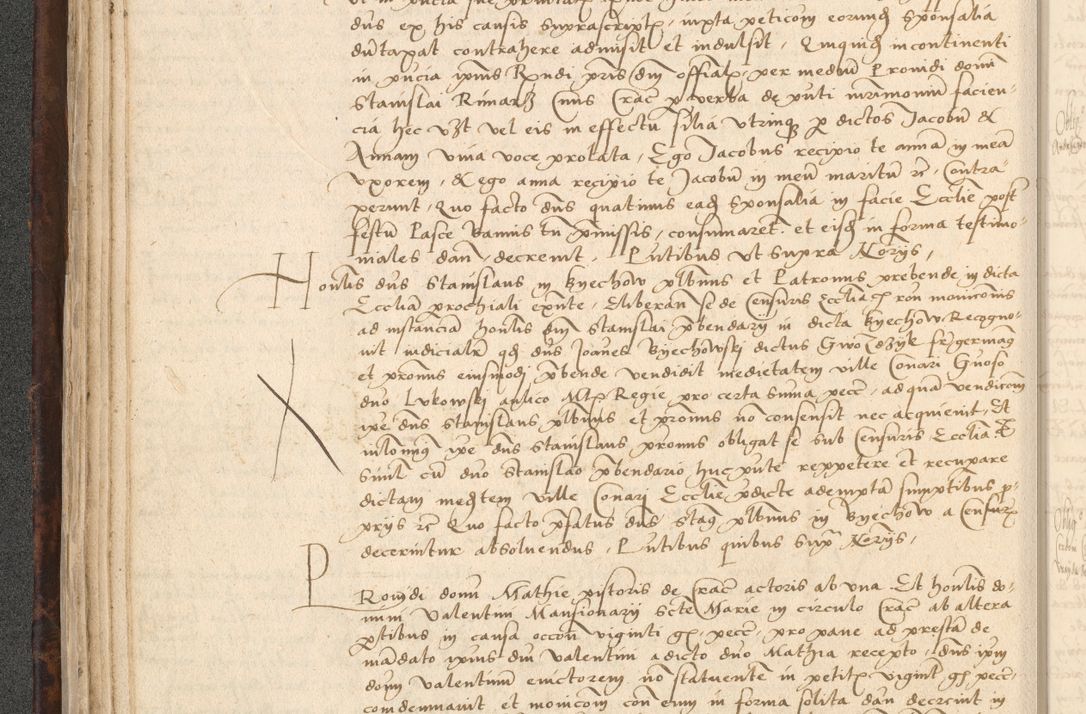 dns ex his causis suprascript, iuxta peticom eorund sponsalia
dutaxat contrahere admisit et indulsit, Quiquid incontinenti
in pncia ipius Rndi pris dni offial, per mediu Prouidi domi
Stanislai Rimarz Ciuis Crac p verba de pnti mrimoniu facien-
cia hec vzt vel eis in effectu silia vtrinq p dictos Jacobu &
Annam viua voce prolata, Ego Jacobus recipio te anna in mea
vxorem, & ego anna recipio te Jacobu in meu maritu rc, Contra
xerunt, Quo facto dns quatinus ead sponsalia in facie Ecclie post
festu Pasce bannis tn pmissis, consumaret et eisd in forma testimo-
niales dan, decreuit, Pntibus vt supra Norijs,
Honlis dns Stanislaus in Kyechow plbnus et Patronus prebende in dicta
Ecclia prochiali exnte, Eliberan se de Censuris Ecclia ron monicionis
ad instancia honlis dni Stanislai pbendarij in dicta Kyechow Recogno-
uit iudicialr qd dns Joanes Kyechowskj dictus Gwozdzyk fr germa
et pronus eiusmodi pbende vendidit medietatem ville Conari Gnoso
dno Lukowskj aulico Mtis Regie pro certa suma pecc, ad qua vendicom
ipe dns Stanislaus plbnus et pronus no consensit nec acquieuit, Et
ipe dns Stanislaus pronus obligat se sub Censuris Ecclia
Simil cu dno Stanislao pbendario huc pnte reppetere et recupare
dictam medtem ville Conari Ecclie pdicte adempta sumptibus p-
prijs rc Quo facto pfatus dns Stan plbnus in Kyechow a Censur
decernitur absoluendus, Pntibus quibus sup Norijs,
Prouidi domi Mathie pistoris de Crac actoris ab vna Et honlis do-
mini Valentini Mansionarij Scte Marie in circulo Crac ab altera
ptibus in causa occon viginti gr, pecc, pro pane ad presta de
mandato ipius dni Valentini a dicto dno Mathia recepto, dns ipm
dom Valentinum euictorem no statuente in petit vigint gr pecc,
condemnauit et monicom con eum in forma solita dan decreuit in